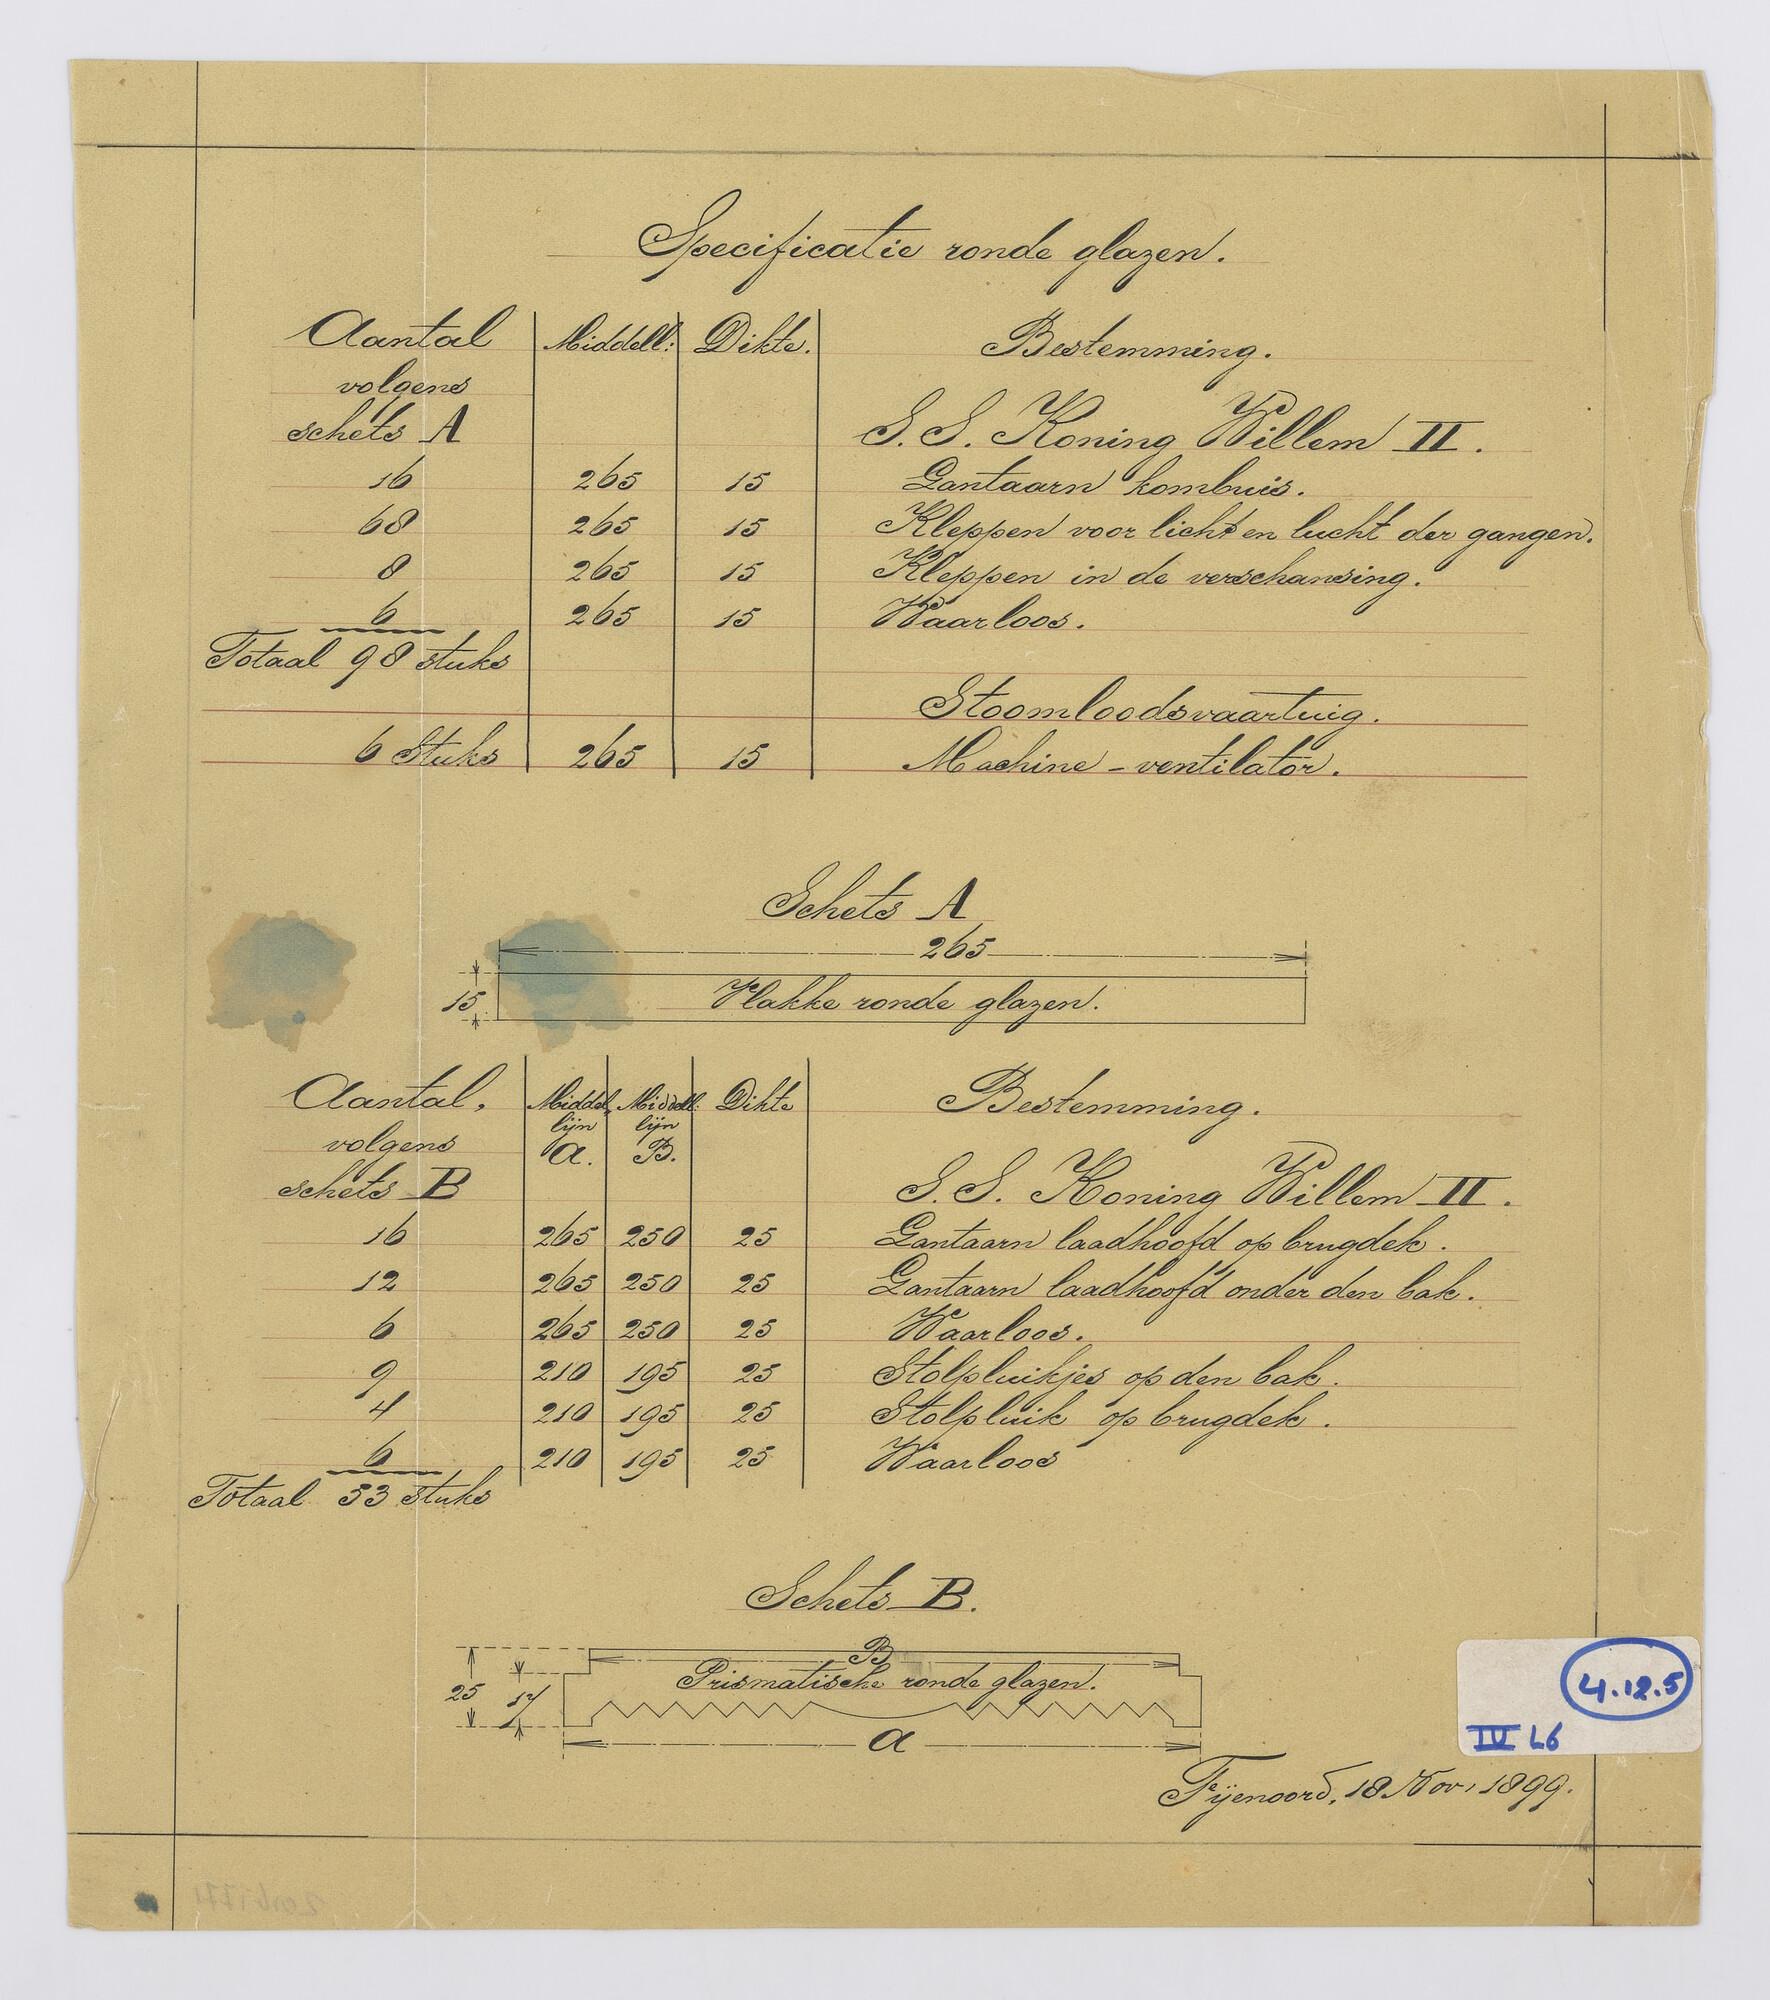 Specificatie ronde glazen.
Aantal Middell: Dikte. Bestemming.
volgens
schets A S. S. Koning Willem II.
16 265 15 Lantaarn kombuis.
68 265 15 Kleppen voor licht en lucht der gangen.
8 265 15 Kleppen in de verschansing.
6 265 15 Waarloos.
Totaal 98 stuks
Stoomloodsvaartuig.
6 Stuks 265 15 Machine-ventilator.
Schets A
265
15 Vlakke ronde glazen.
Aantal, Middel, Middell: Dikte Bestemming.
lijn lijn
volgens a. B.
schets B S. S. Koning Willem II.
16 265 250 25 Lantaarn laadhoofd op brugdek.
12 265 250 25 Lantaarn laadhoofd onder den bak.
6 265 250 25 Waarloos.
9 210 195 25 Stolpluikjes op den bak.
4 210 195 25 Stolpluik op brugdek.
6 210 195 25 Waarloos
Totaal 53 stuks
Schets B.
B
25 17 Prismatische ronde glazen.
a
4.12.5
IV L6
Feijenoord, 18 Nov, 1899.